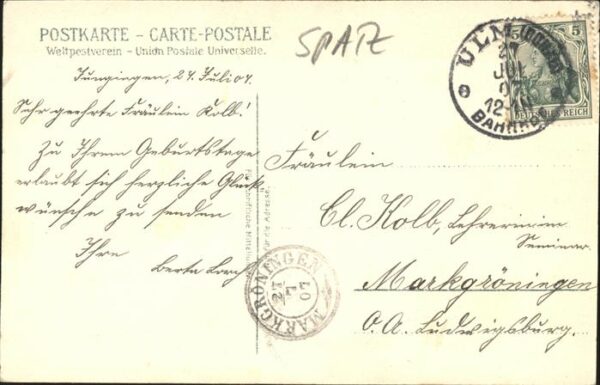 POSTKARTE – CARTE-POSTALE
Weltpostverein – Union Postale Universelle.
SPATZ
ULM (DONAU)
JUL
BAHNHOF
5
DEUTSCHES REICH
Jungingen, 24. Juli 04.
Sehr geehrte Fräulein Kolb!
Zu Ihrem Geburtstage
erlaubt sich herzliche Glück
wünsche zu senden
Ihre
Berta
Fräulein
Cl. Kolb, Lehrerin am
Seminar
Markgröningen
O.A. Ludwigsburg.
MARKGRÖNINGEN
für die Adresse.